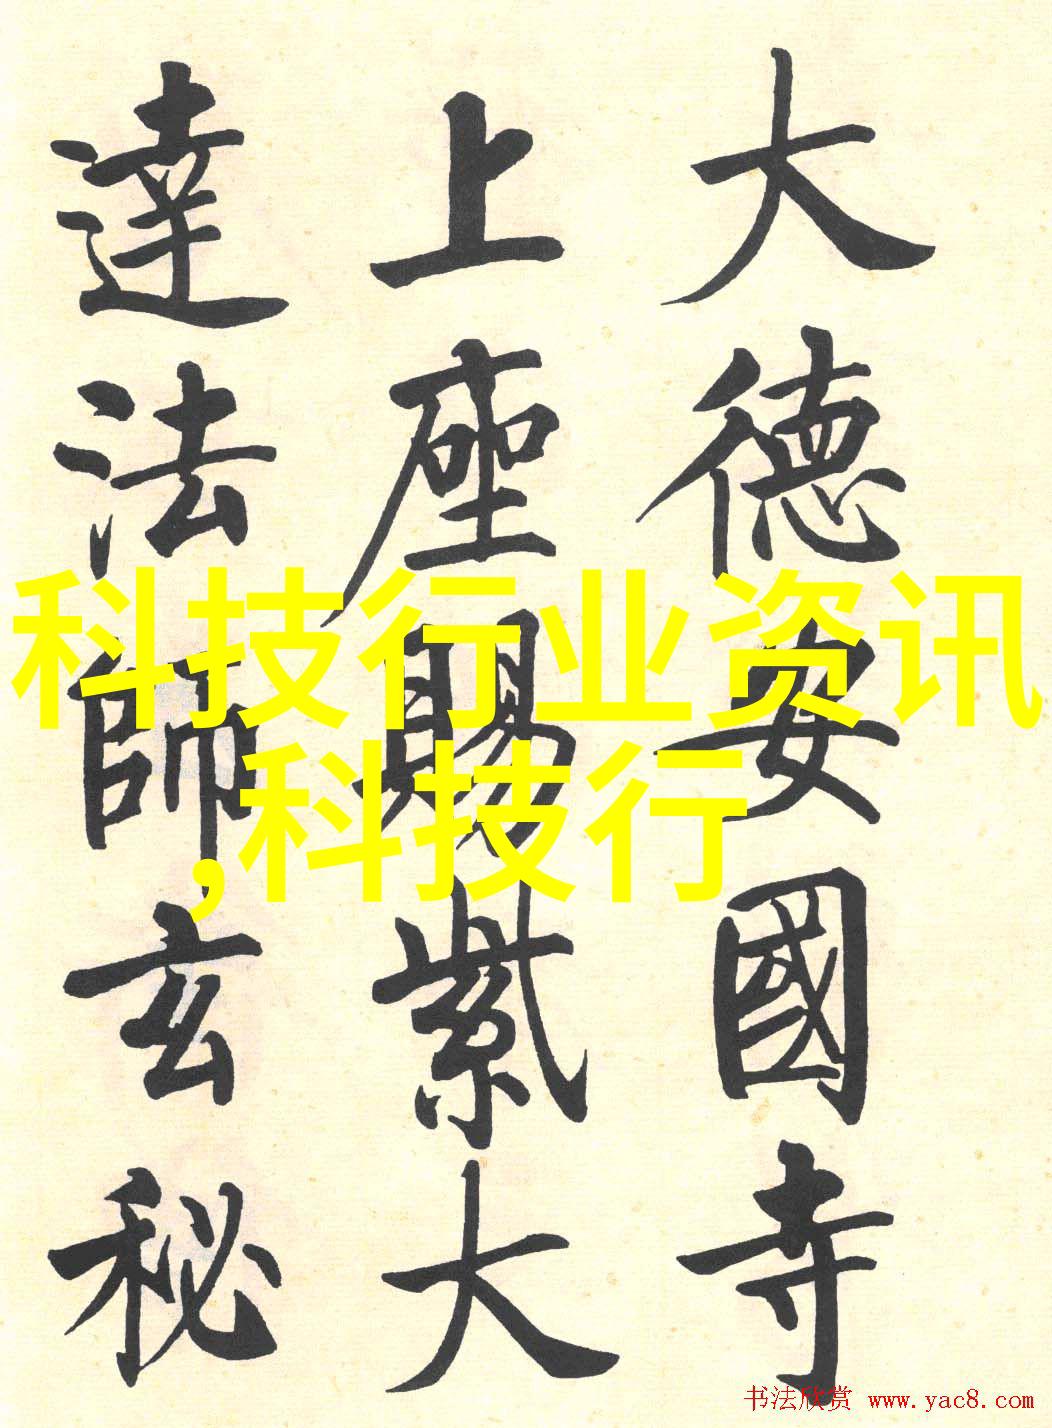 大德安國寺
上座賜紫大
達法師玄秘
科技行业资讯
,科技行
书法欣赏 www.yac8.com